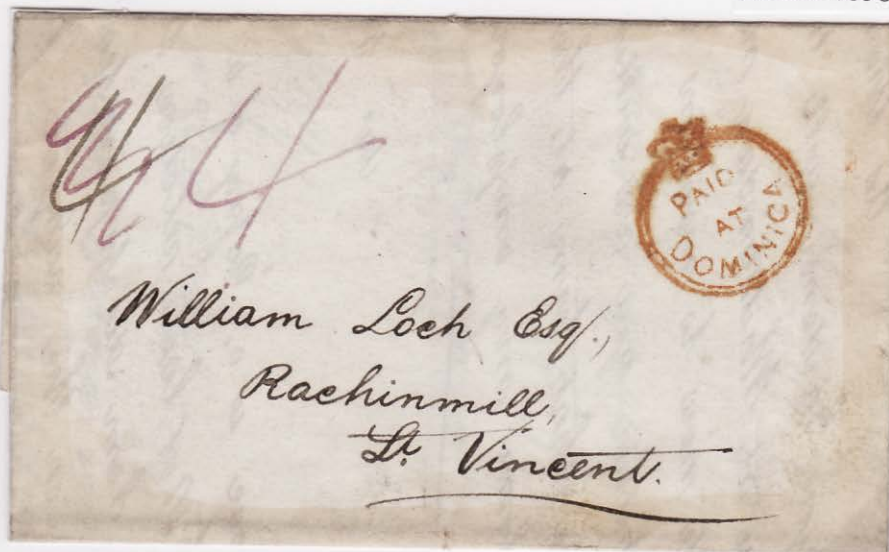 4 4
PAID
AT
DOMINICA
William Loch Esq.,
Rachinmill,
St. Vincent.